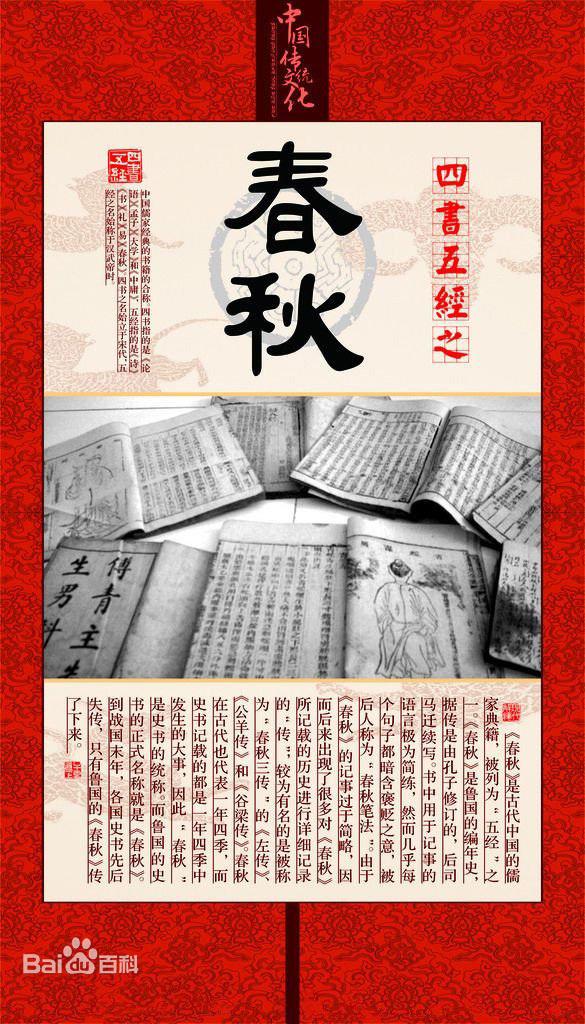 中国传统文化
四書五經之
春秋
四書五經
中国儒家经典的书籍的合称。四书指的是《论
语》《孟子》《大学》和《中庸》，五经指的是《诗》
《书》《礼》《易》《春秋》四书之名始立于宋代，五
经之名始称于汉武帝时。
傅青主
生男科
《春秋》是古代中国的儒
家典籍，被列为“五经”之
一。《春秋》是鲁国的编年史，
据传是由孔子修订的，后司
马迁续写。书中用于记事的
语言极为简练，然而几乎每
个句子都暗含褒贬之意，被
后人称为“春秋笔法”。由于
《春秋》的记事过于简略，因
而后来出现了很多对《春秋》
所记载的历史进行详细记录
的“传”，较为有名的是被称
为“春秋三传”的《左传》、
《公羊传》和《谷梁传》。春秋
在古代也代表一年四季，而
史书记载的都是一年四季中
发生的大事，因此“春秋”
是史书的统称。而鲁国的史
书的正式名称就是《春秋》。
到战国末年，各国史书先后
失传，只有鲁国的《春秋》传
了下来。
Baidu百科